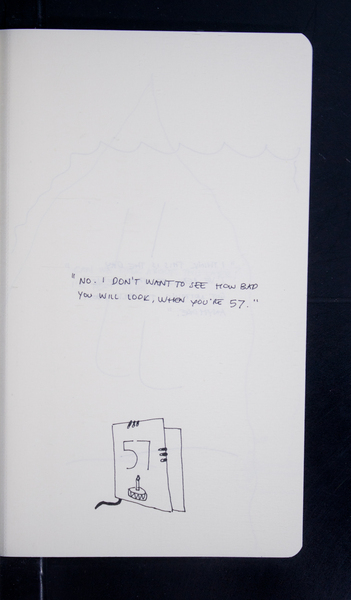 "NO. I DON'T WANT TO SEE HOW BAD
YOU WILL LOOK, WHEN YOU'RE 57."
57